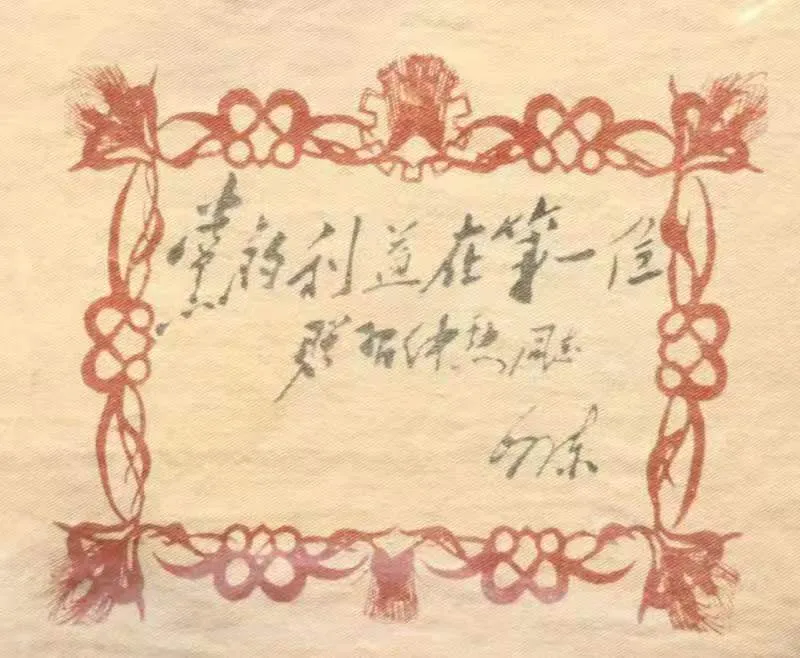 党的利益在第一位
赠给习仲勋同志
毛泽东